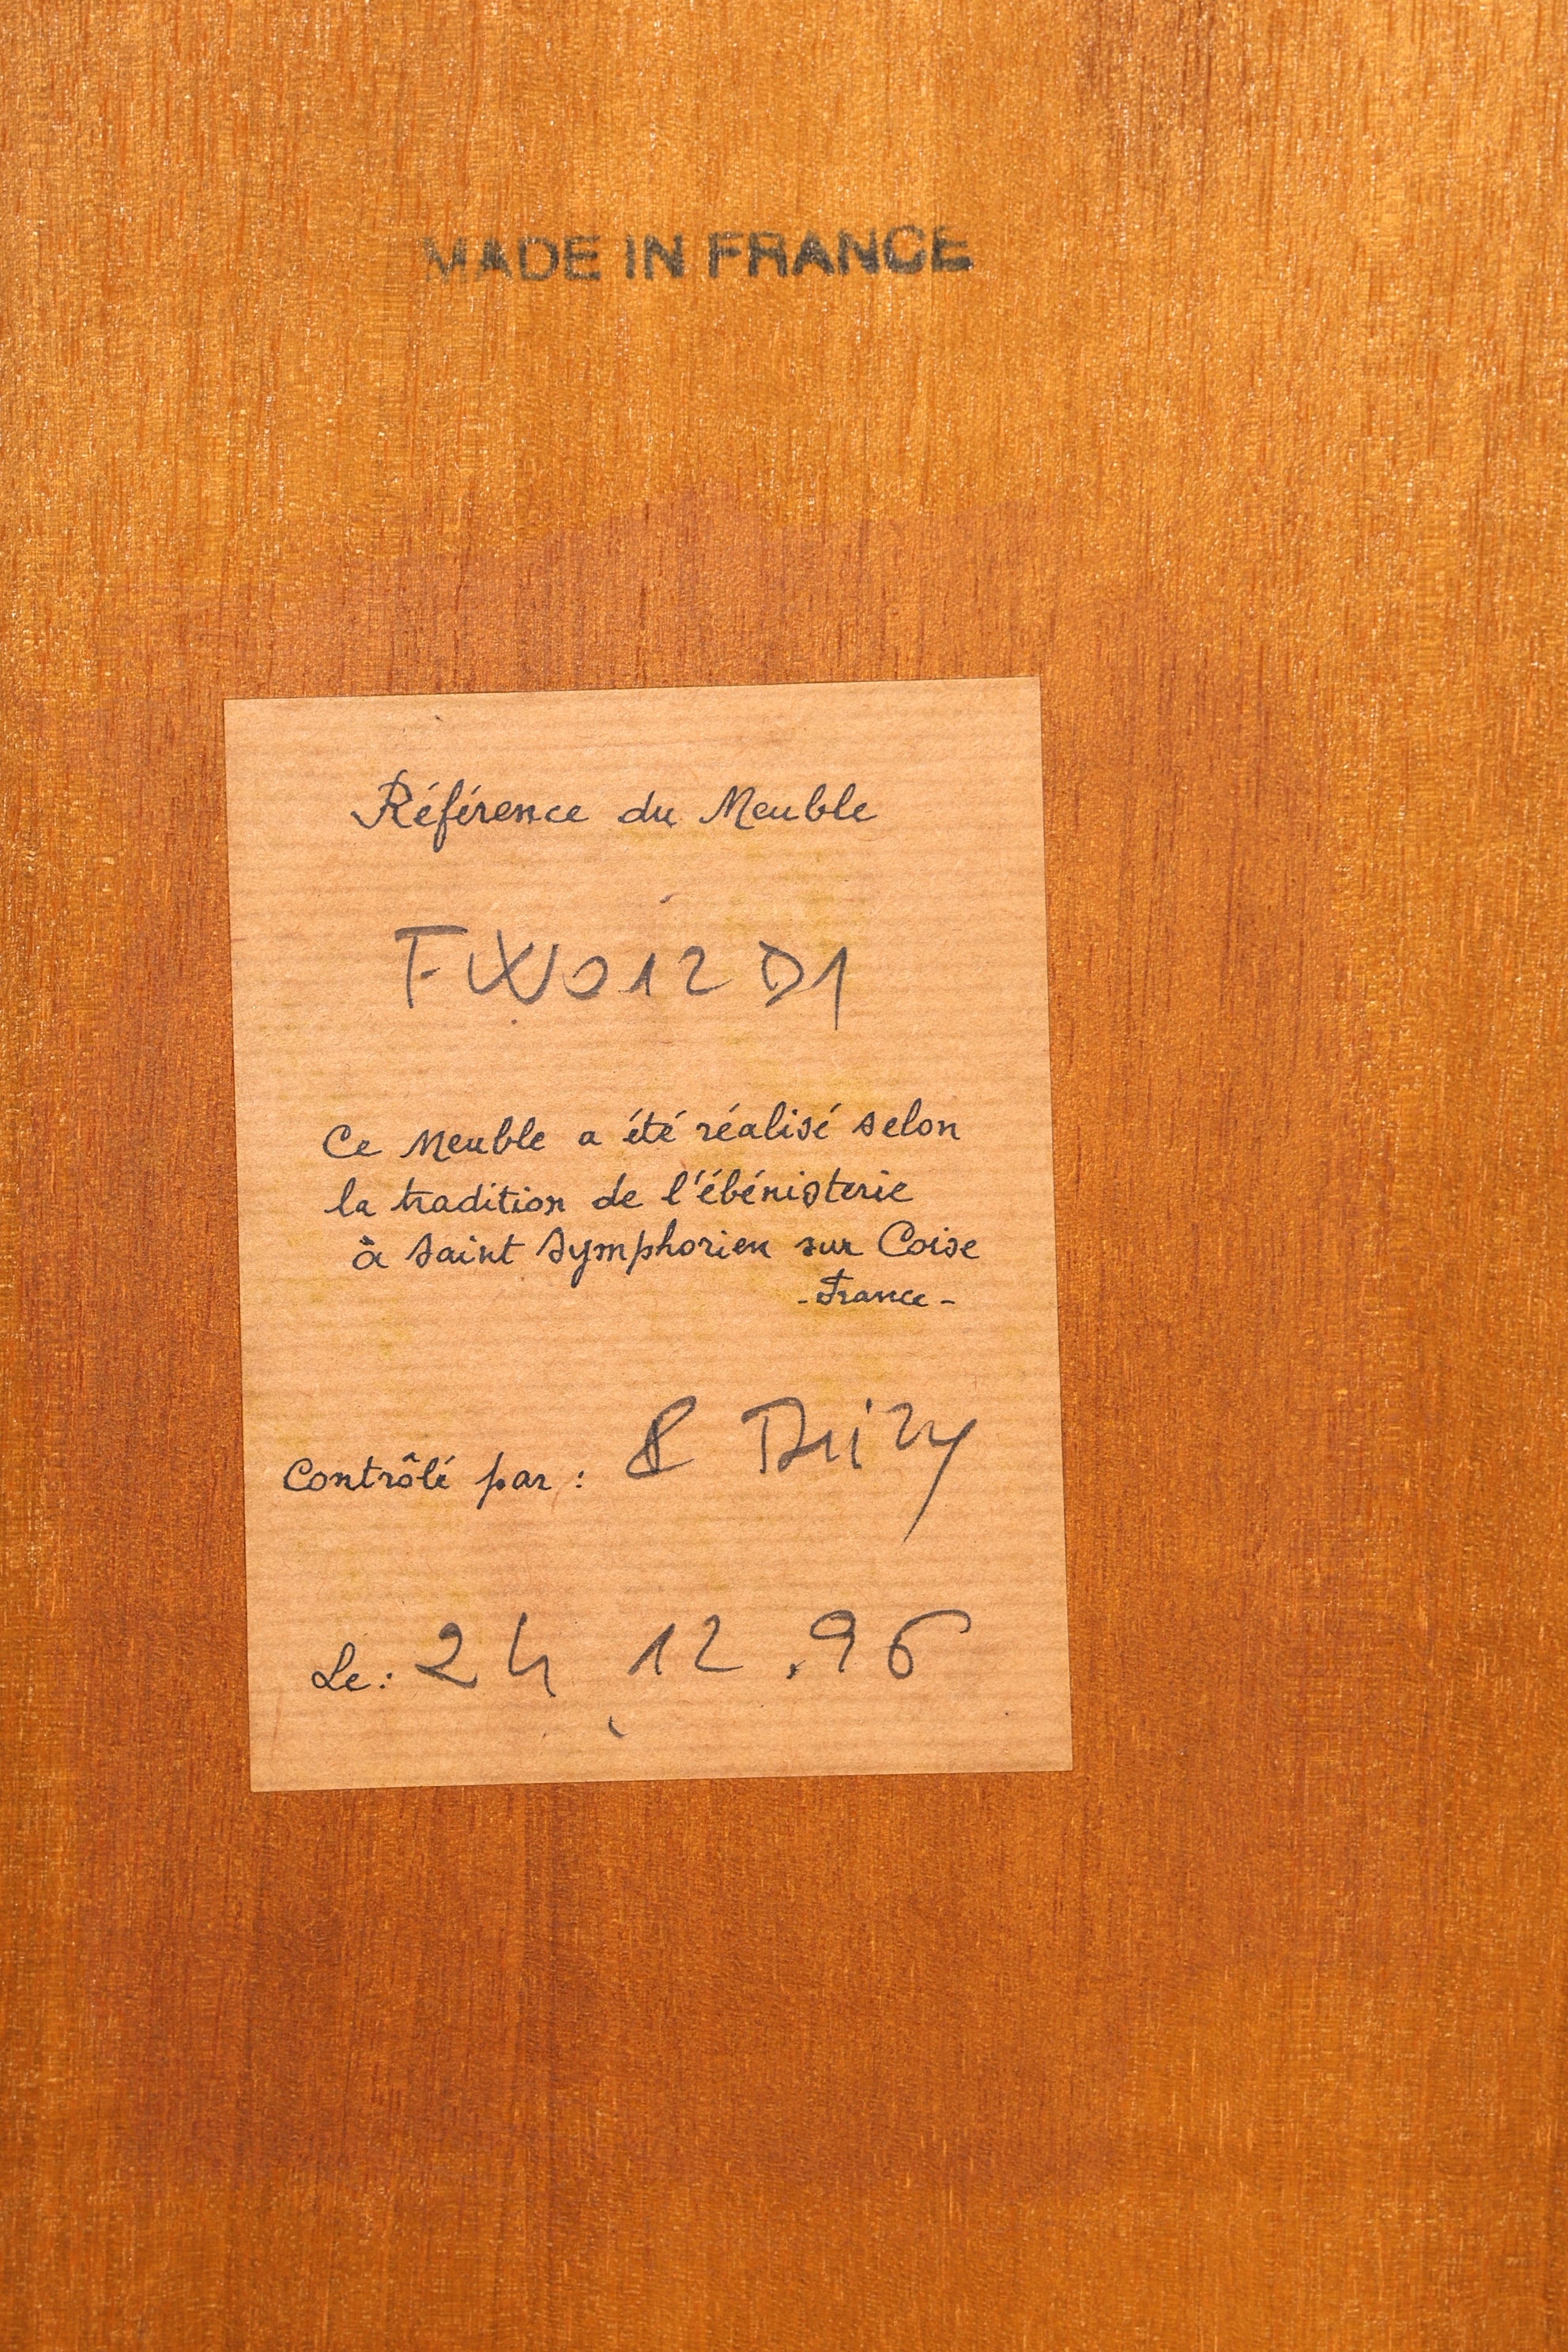 MADE IN FRANCE
Référence du Meuble
FW012 D1
Ce Meuble a été réalisé selon
la tradition de l'ébénisterie
à Saint Symphorien sur Coise
- France -
Contrôlé par :
Le : 24 12 . 96